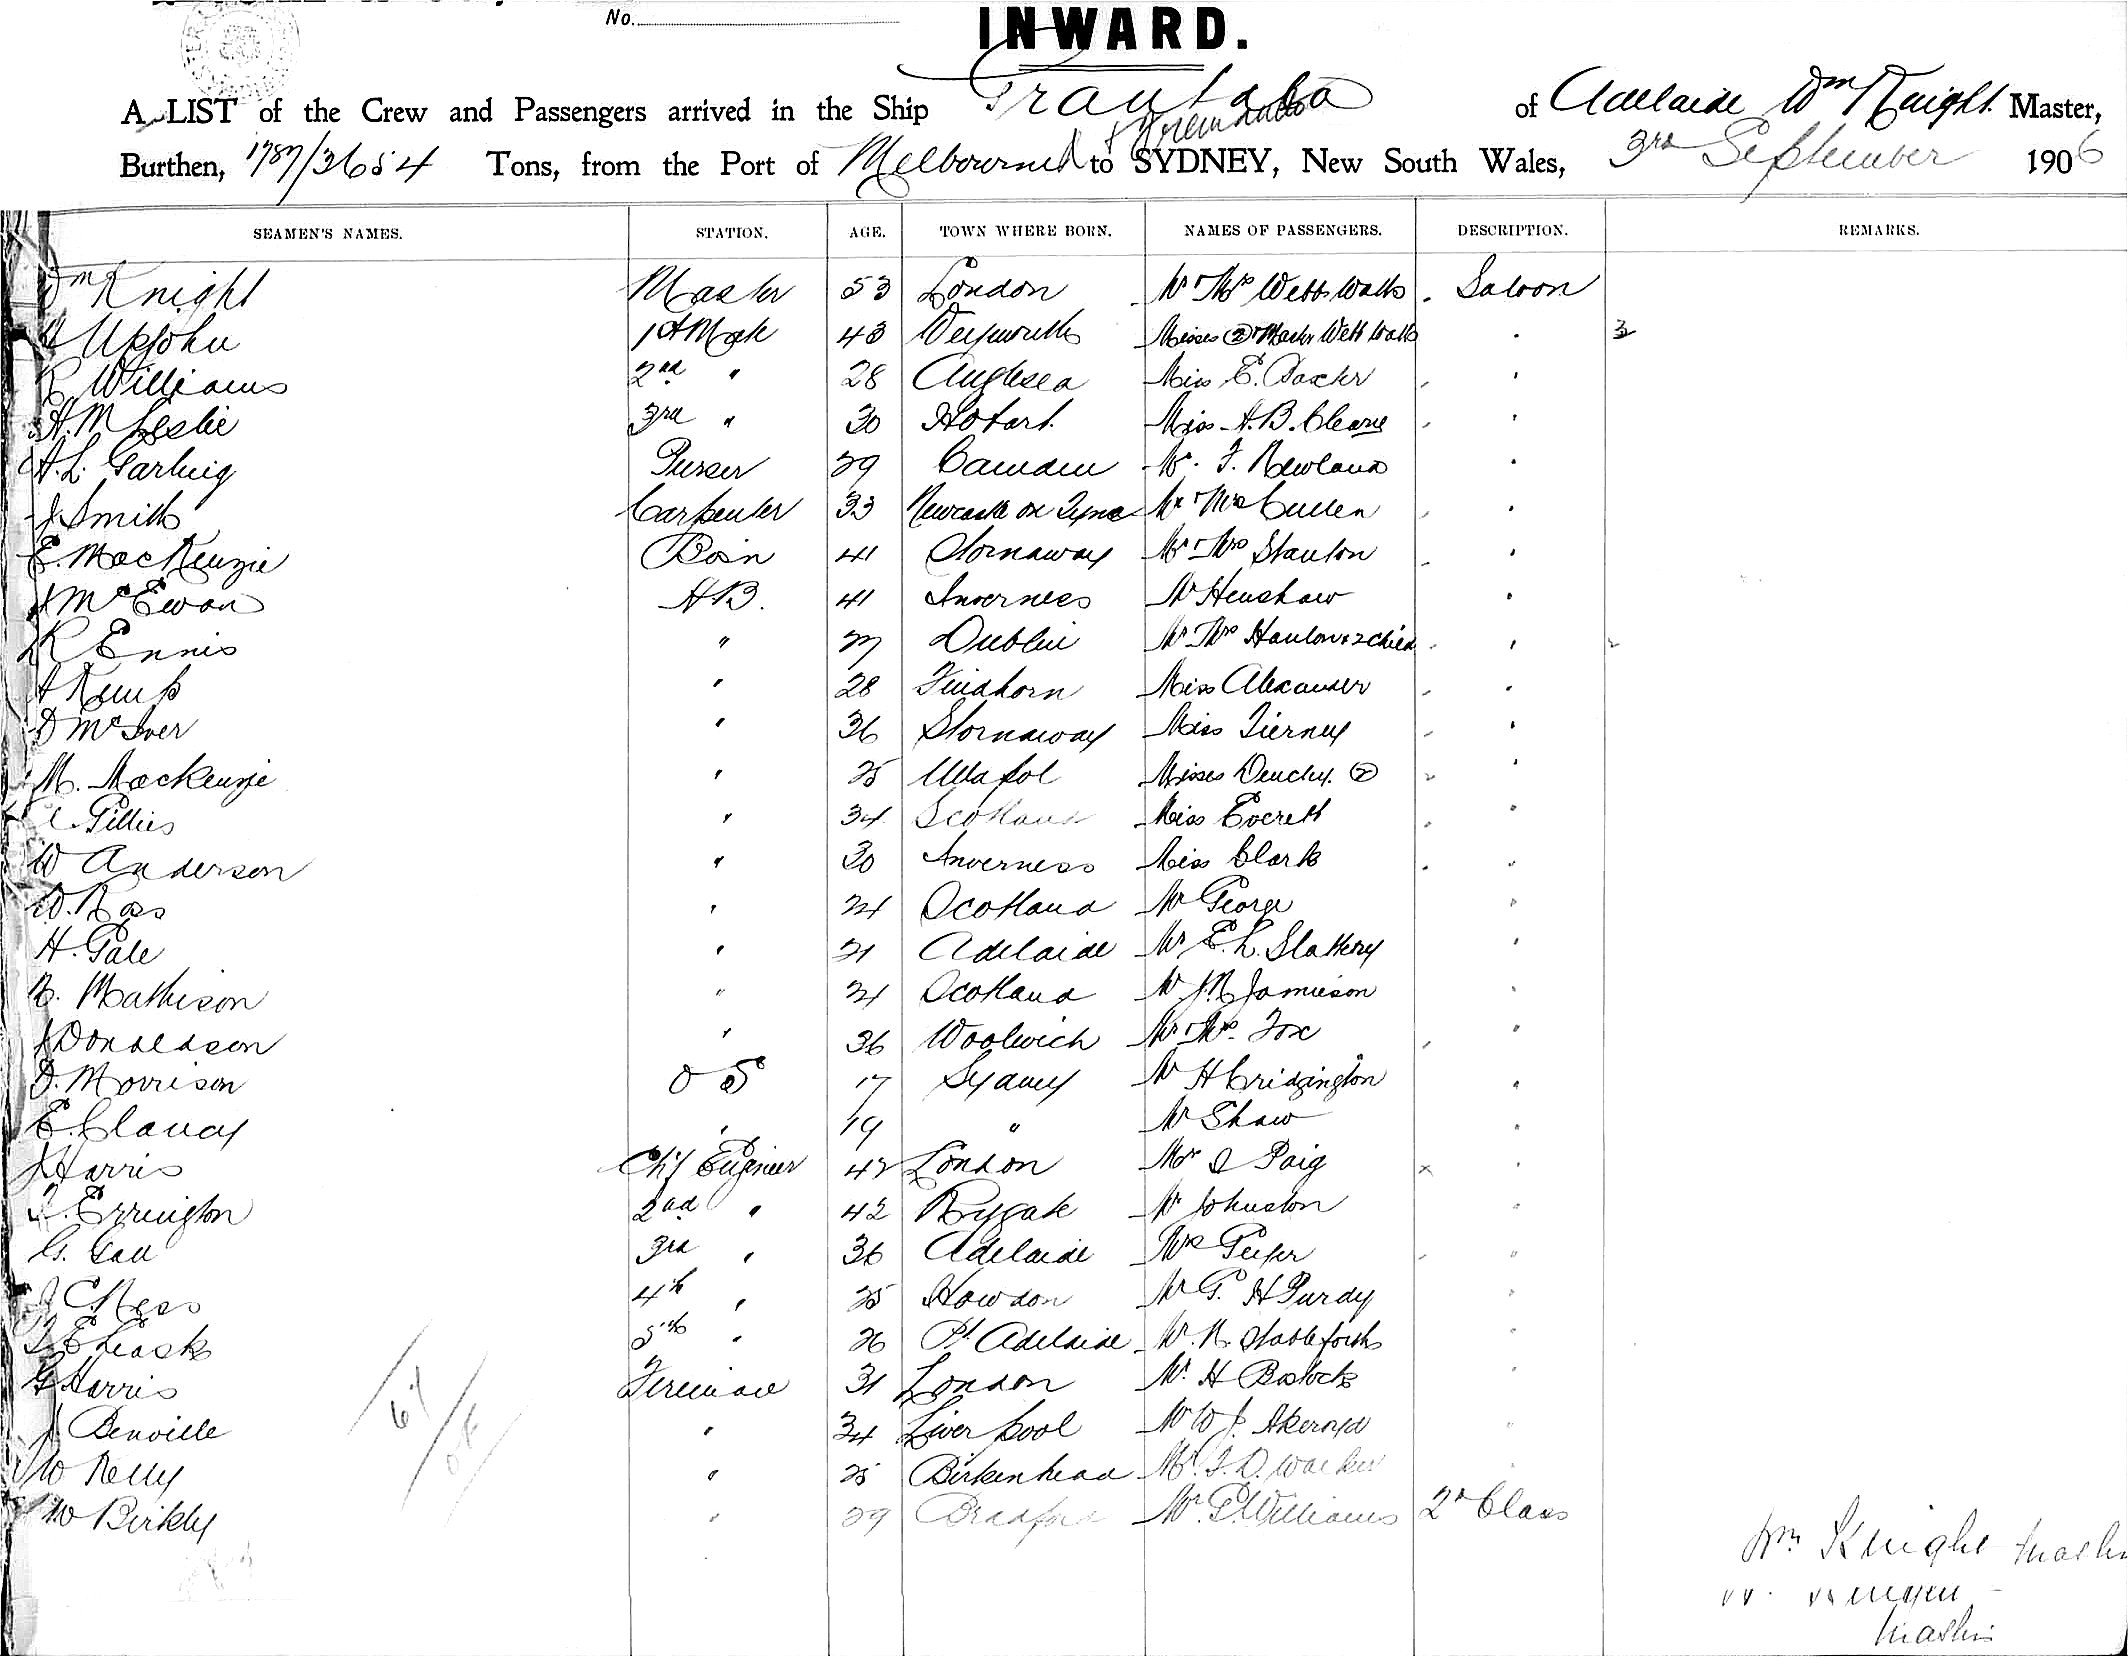 No.
INWARD.
A LIST of the Crew and Passengers arrived in the Ship Grantala of Adelaide Wm Knight Master,
Burthen, 1787/3654 Tons, from the Port of Melbourne & Fremantle to SYDNEY, New South Wales, 3rd September 1906
SEAMEN'S NAMES. STATION. AGE. TOWN WHERE BORN. NAMES OF PASSENGERS. DESCRIPTION. REMARKS.
Wm Knight Master 53 London Mr Mrs Webb Watts Saloon
Upjohn 1st Mate 43 Misses (2) Master Webb Watts " 3
R Williams 2nd " 28 Anglesea Miss E. Baxter "
A.M Leslie 3rd " 30 Hobart. Miss A.B. Cleave "
A.L. Garling Purser 29 Camden Mr. F. Newland "
J Smith Carpenter 33 Newcastle on Tyne Mr Mrs Cullen "
E. MacKenzie Bosn 41 Stornaway Mr Mrs Stanton "
J McEwan AB. 41 Inverness Mr Henshaw "
R Ennis " 27 Dublin Mr Mrs Hanlon & 2 child " 2
A Kemp " 28 Findhorn Miss Alexander "
D McIver " 36 Stornaway Miss Tierney "
M. MacKenzie " 25 Ullapol Misses Denehy. (2) "
Gillies " 34 Scotland Miss Everett "
W Anderson " 30 Inverness Miss Clark "
D. Ross " 24 Scotland Mr George "
H. Gale " 21 Adelaide Mr E.L. Slattery "
N. Mathison " 24 Scotland Mr J.R Jamieson "
J Donaldson " 36 Woolwich Mr Mrs. Fox "
D. Morrison O S 17 Sydney Mr H Cridgington "
E. Clancy " 19 " Mr Shaw "
J Harris Chf Engineer 47 London Mr Paig "
Errington 2nd " 42 Rygate Mr Johnston "
G. Gau 3rd " 36 Adelaide Mrs "
J C Ness 4th " 25 Howdon Mr G. H Purdy "
Leask 5th " 26 Pt Adelaide Mr. R. Stableforth "
G Harris Fireman 31 London Mr. H Bostock "
J Benville " 34 Liverpool Mr W J. Akeroyd "
W Kelly " 25 Birkenhead Mr. F. D. Walker "
W Birkby " 29 Bradford Mr. P. Williams 2d Class
Wm Knight
Master